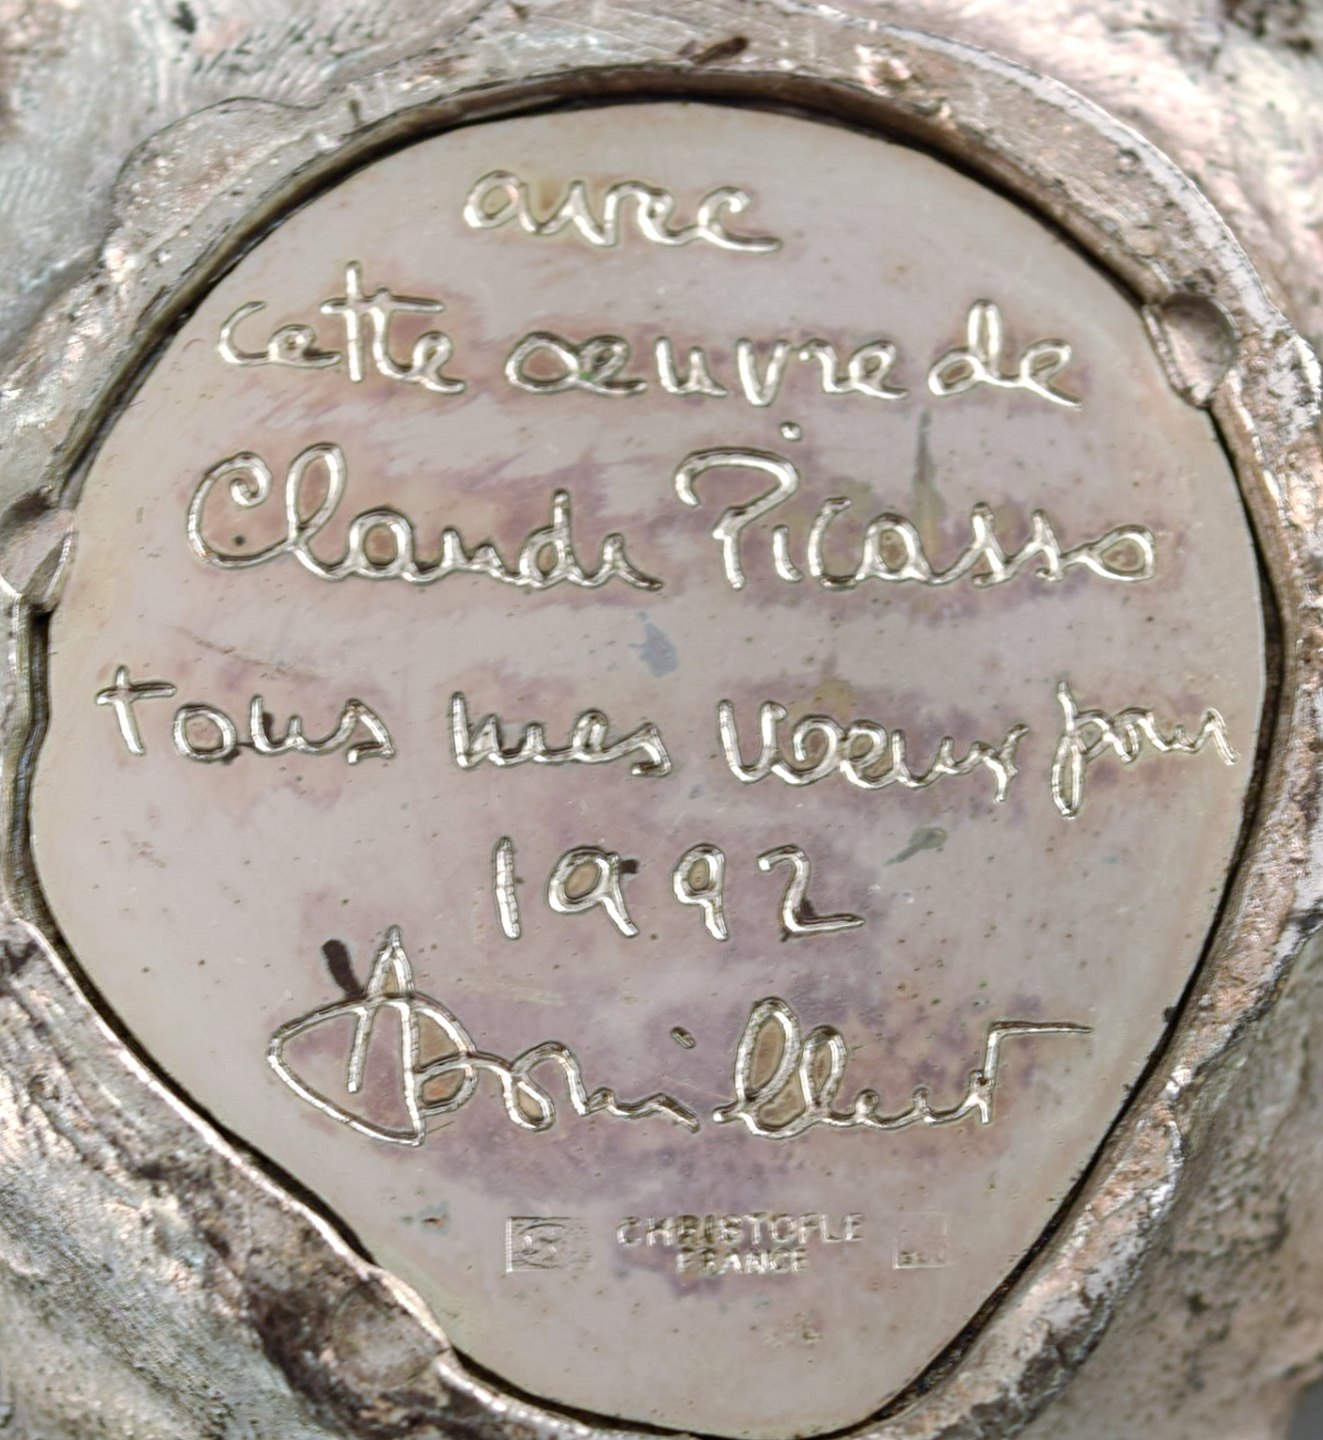 avec
cette oeuvre de
Claude Picasso
tous mes voeux pour
1992
CHRISTOFLE
FRANCE